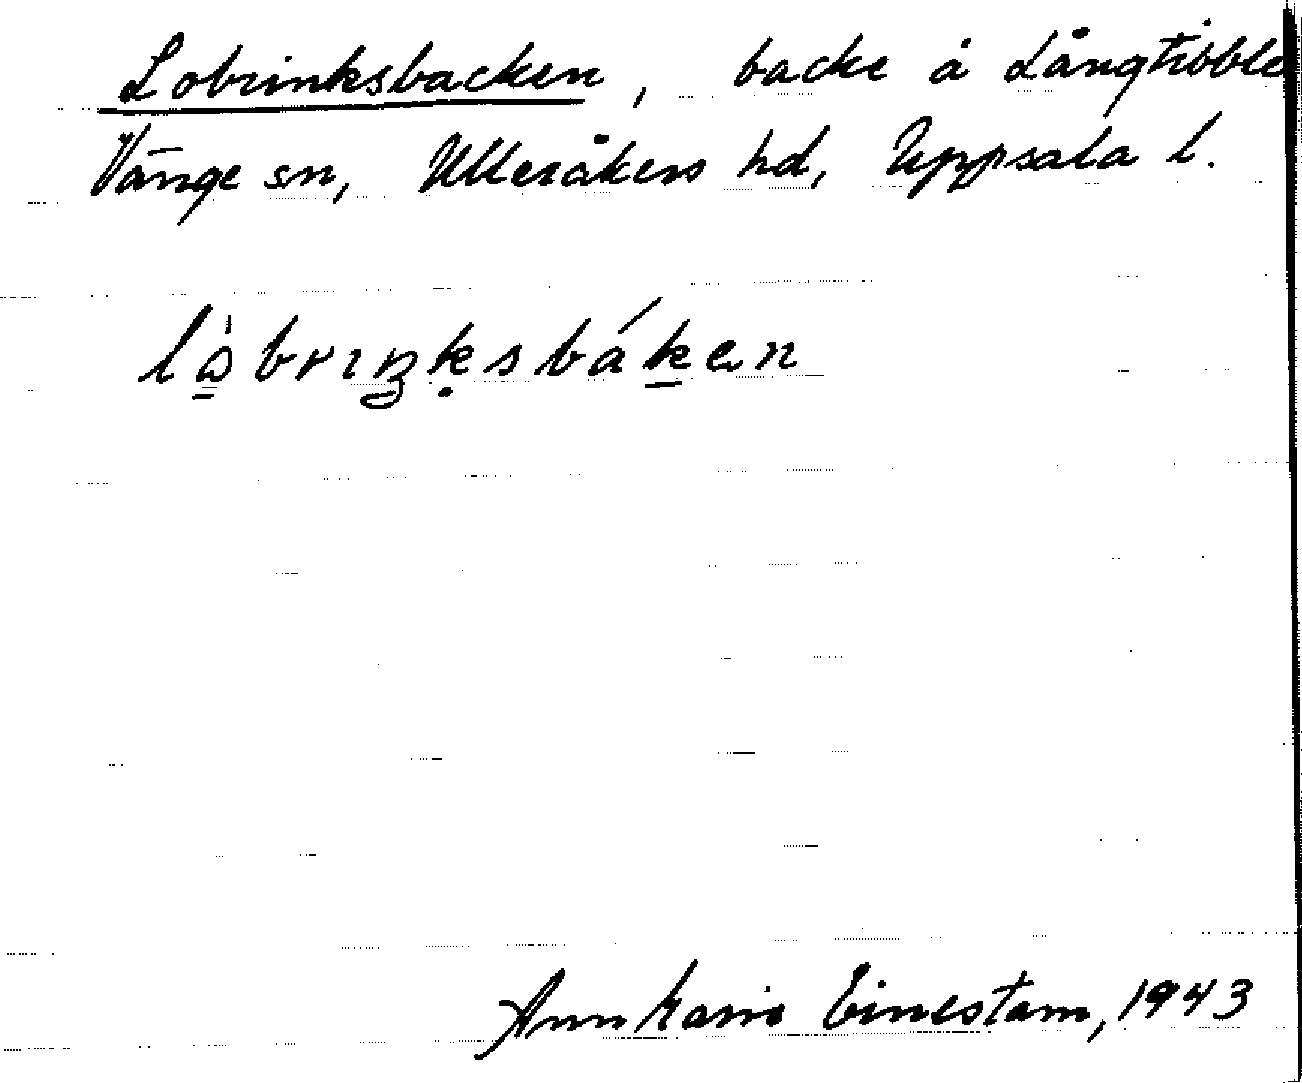 Lobrinksbacken, backe å Långtibble
Vänge sn, Ulleråkers hd, Uppsala l.
lòbrıŋksbáken
Ann Karin Einestam, 1943